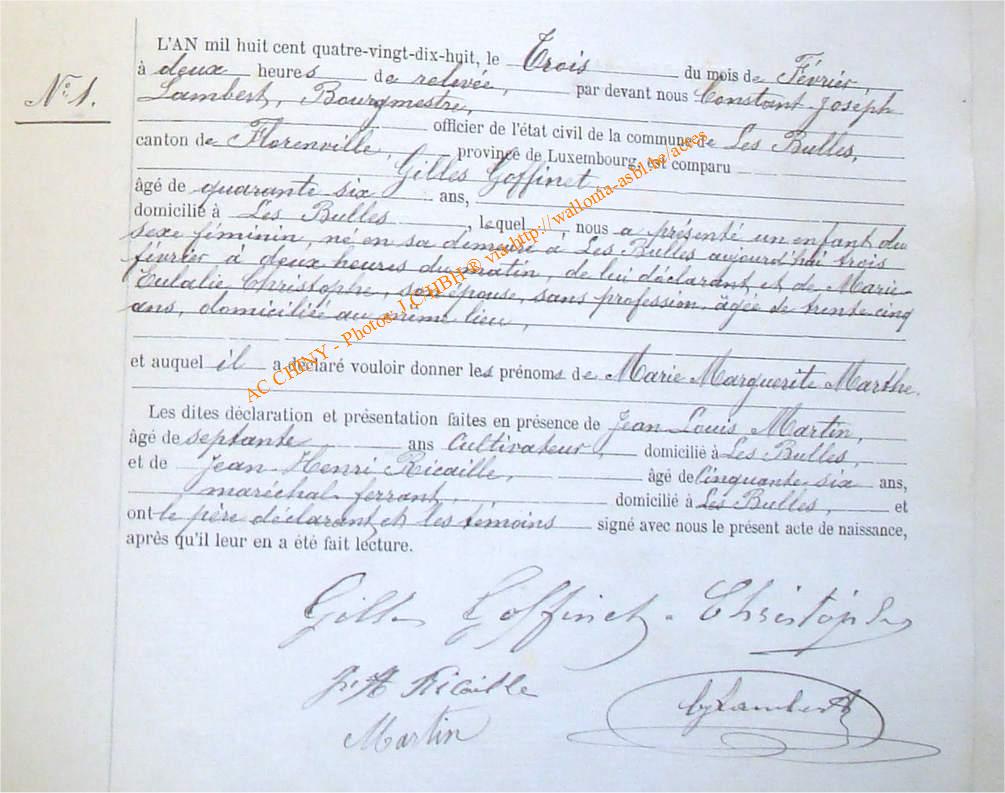 N° 1.
L'AN mil huit cent quatre-vingt-dix-huit, le Trois du mois de Février,
à deux heures de relevée, par devant nous Constant Joseph
Lambert, Bourgmestre,
officier de l'état civil de la commune de Les Bulles,
canton de Florenville, province de Luxembourg, est comparu
Gilles Goffinet
âgé de quarante six ans,
domicilié à Les Bulles, lequel, nous a présenté un enfant du
sexe féminin, né en sa demeure à Les Bulles aujourd'hui trois
février à deux heures du matin, de lui déclarant et de Marie
Eulalie Christophe, son épouse, sans profession, âgée de trente cinq
ans, domiciliée au même lieu,
et auquel il a déclaré vouloir donner les prénoms de Marie Marguerite Marthe.
Les dites déclaration et présentation faites en présence de Jean Louis Martin,
âgé de septante ans Cultivateur, domicilié à Les Bulles,
et de Jean Henri Ricaille, âgé de Cinquante six ans,
maréchal ferrant, domicilié à Les Bulles, et
ont le père déclarant et les témoins signé avec nous le présent acte de naissance,
après qu'il leur en a été fait lecture.
Gilles Goffinet-Christophe
J. H Ricaille
Martin
CjLambert
AC CHINY - Photos LC/HBH ® via http://wallonia-asbl.be/actes